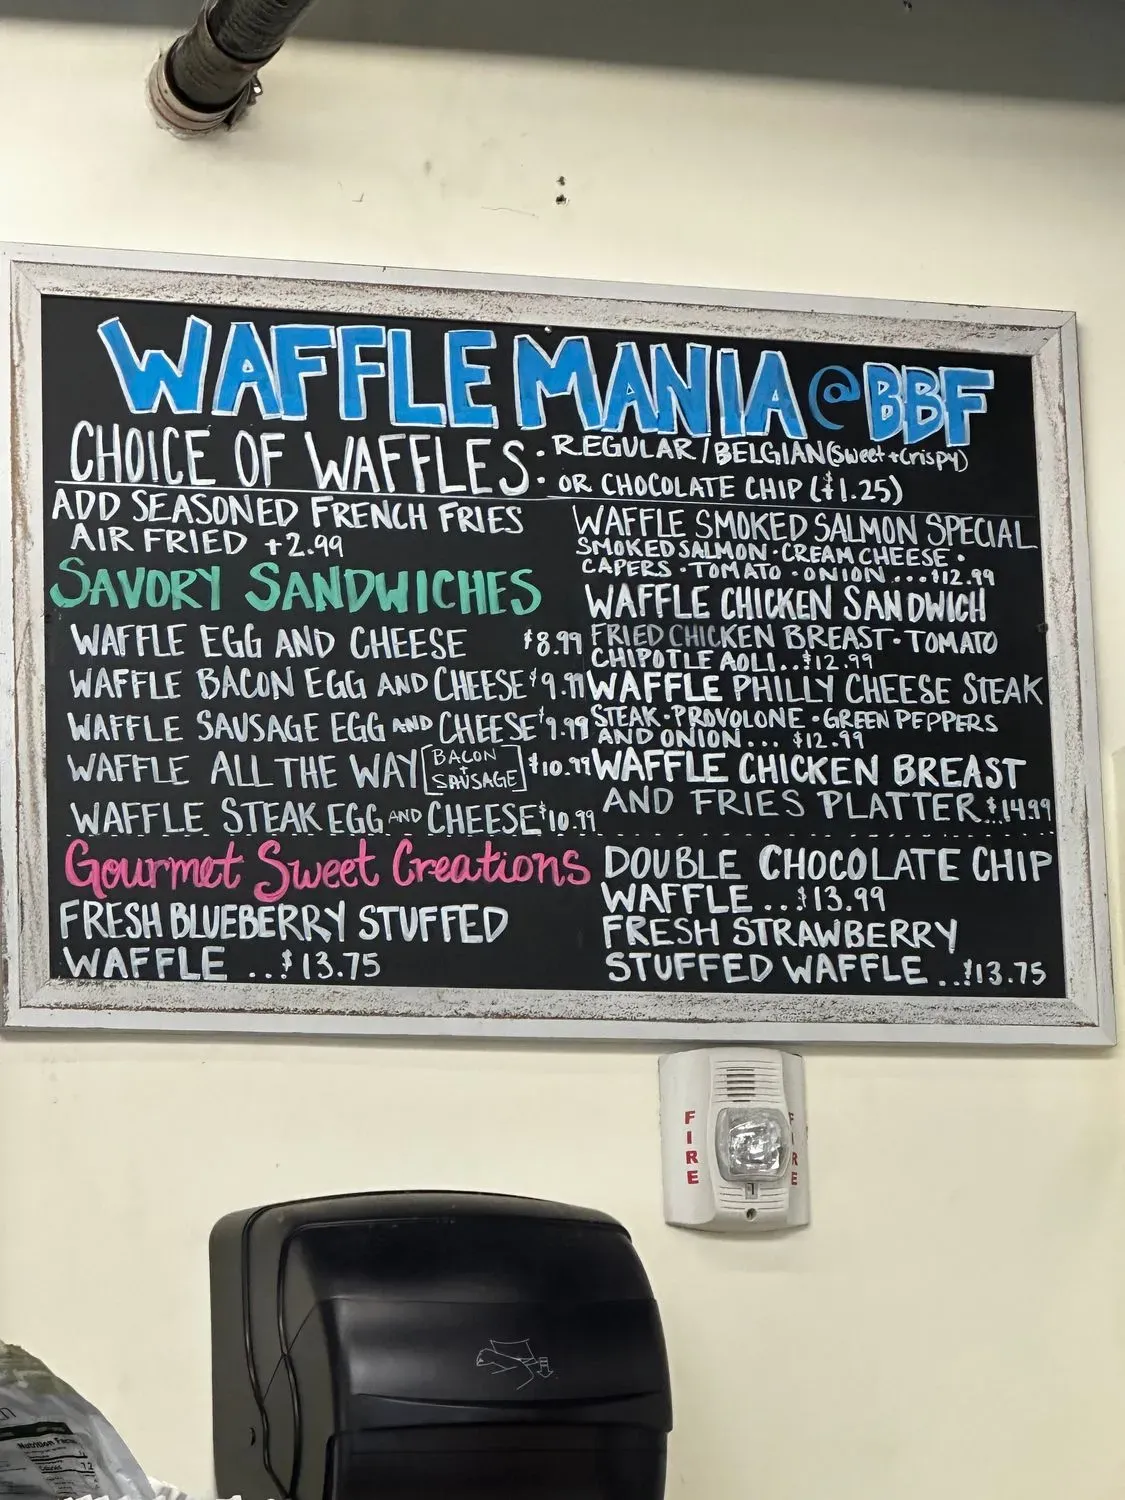 WAFFLE MANIA @ BBF
CHOICE OF WAFFLES · REGULAR / BELGIAN (Sweet + Crispy)
· OR CHOCOLATE CHIP ($1.25)
ADD SEASONED FRENCH FRIES
AIR FRIED +2.99
SAVORY SANDWICHES
WAFFLE EGG AND CHEESE $8.99
WAFFLE BACON EGG AND CHEESE $9.99
WAFFLE SAUSAGE EGG AND CHEESE $9.99
WAFFLE ALL THE WAY [BACON + SAUSAGE] $10.99
WAFFLE STEAK EGG AND CHEESE $10.99
WAFFLE SMOKED SALMON SPECIAL
SMOKED SALMON · CREAM CHEESE ·
CAPERS · TOMATO · ONION ... $12.99
WAFFLE CHICKEN SANDWICH
FRIED CHICKEN BREAST · TOMATO
CHIPOTLE AOLI... $12.99
WAFFLE PHILLY CHEESE STEAK
STEAK · PROVOLONE · GREEN PEPPERS
AND ONION... $12.99
WAFFLE CHICKEN BREAST
AND FRIES PLATTER... $14.99
Gourmet Sweet Creations
FRESH BLUEBERRY STUFFED
WAFFLE ... $13.75
DOUBLE CHOCOLATE CHIP
WAFFLE ... $13.99
FRESH STRAWBERRY
STUFFED WAFFLE ... $13.75
FIRE
FIRE
Nutrition Facts